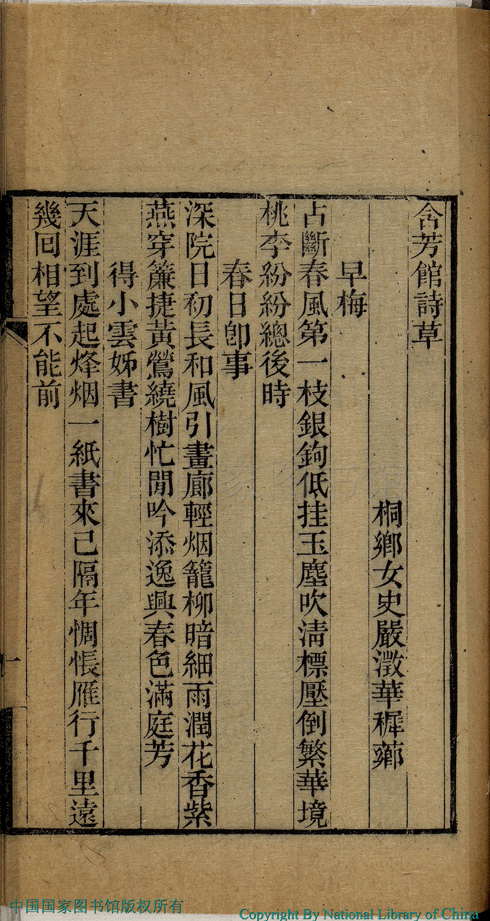 含芳館詩草
桐鄉女史嚴澂華穉薌
早梅
占斷春風第一枝銀鉤低挂玉塵吹淸標壓倒繁華境
桃李紛紛總後時
春日卽事
深院日初長和風引畫廊輕烟籠柳暗細雨潤花香紫
燕穿簾捷黃鶯繞樹忙閒吟添逸興春色滿庭芳
得小雲姊書
天涯到處起烽烟一紙書來已隔年惆悵雁行千里遠
幾回相望不能前
一
中国国家图书馆版权所有
Copyright By National Library of China